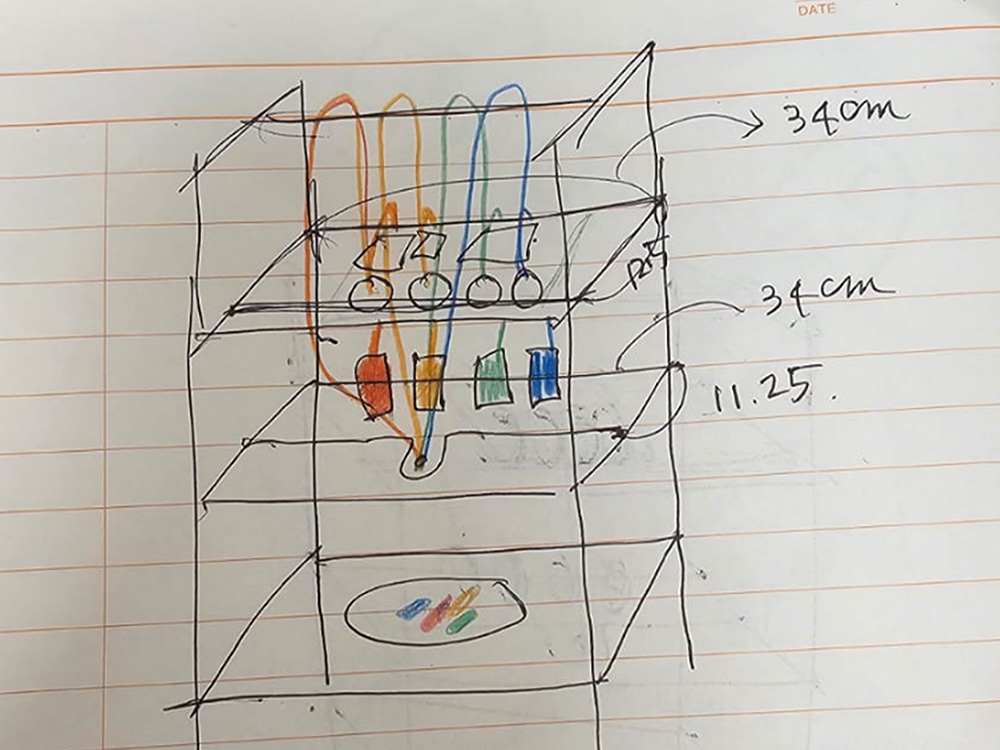 DATE
34cm
34cm
11.25.